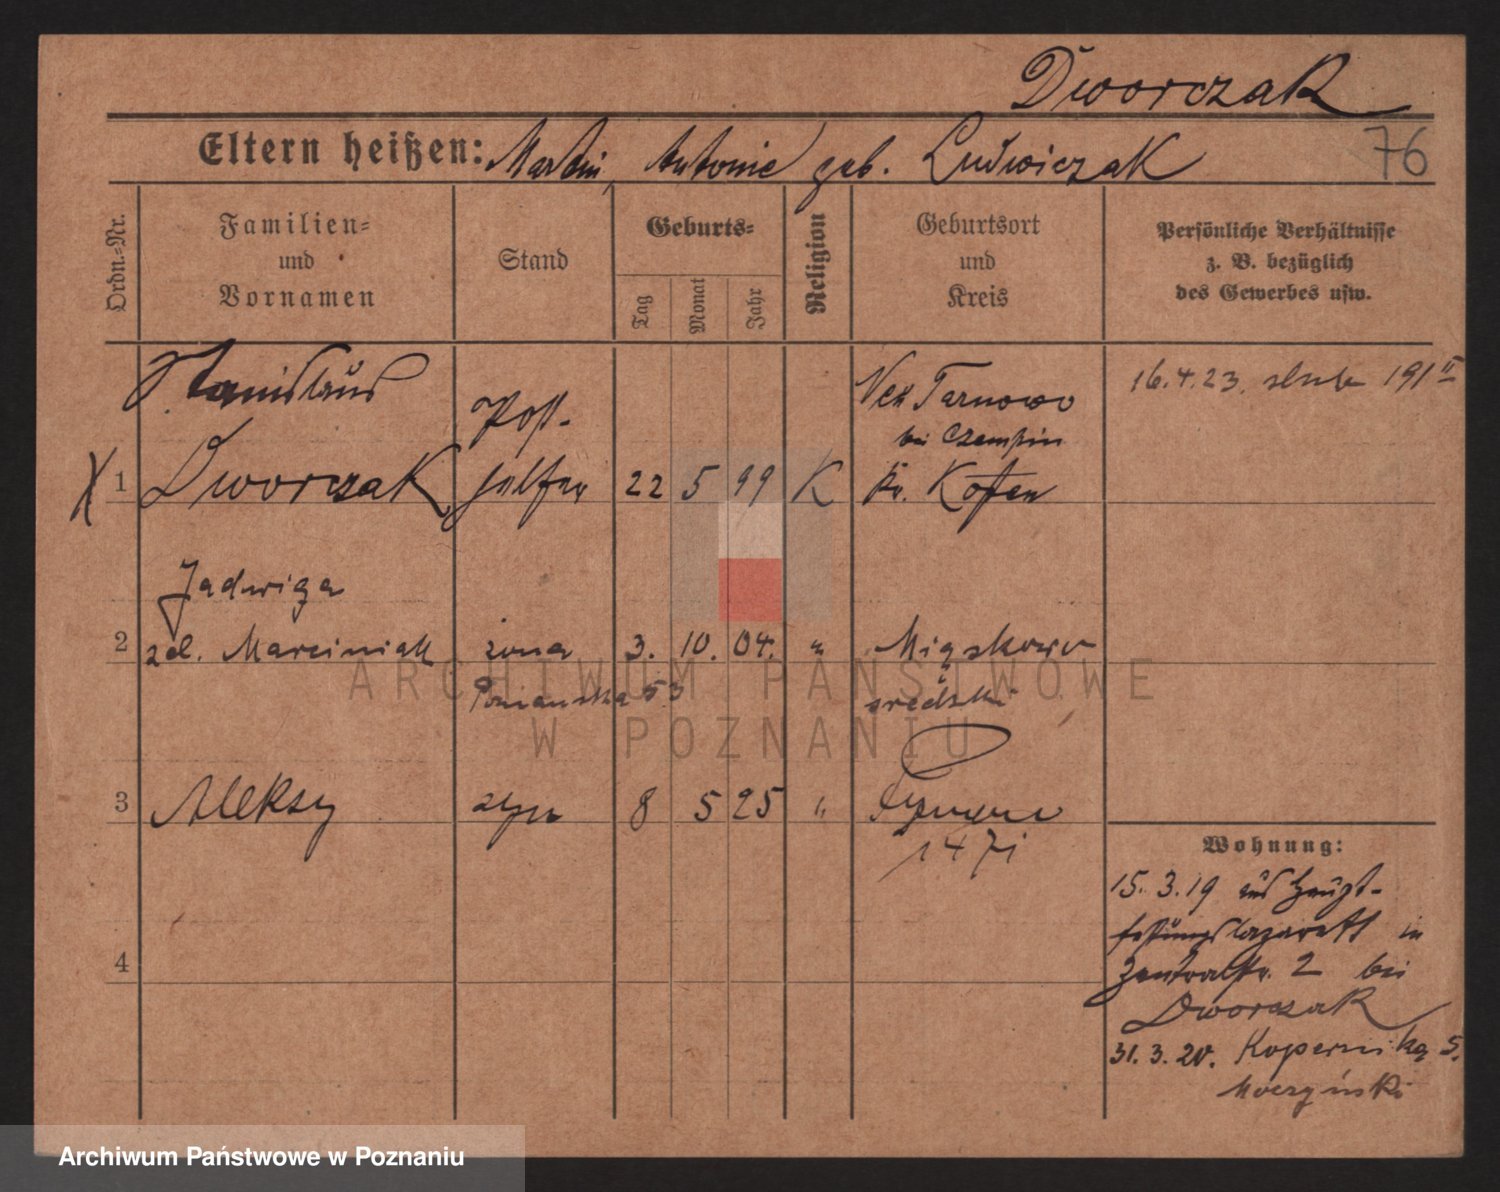 Dworczak
Eltern heißen: Martin, Antonie geb. Ludwiczak
76
Ordn.=Nr.
Familien=
und
Vornamen
Stand
Geburts=
Tag
Monat
Jahr
Religion
Geburtsort
und
Kreis
Persönliche Verhältnisse
z. B. bezüglich
des Gewerbes usw.
Stanislaus
Post-
1 Dworczak helfer 22 5 99 K
Tarnowo
bei Czempin
Kr. Kosten
16.4.23. 191
Jadwiga
2 zd. Marciniak żona 3. 10. 04. " Miąskowo
Poznańska 53 średzki
3 Aleksy syn 8 5 25 "
147i
4
Wohnung:
15.3.19 aus Haupt-
festungslazarett in
Zentralstr. 2 bei
Dworczak
31.3.20. Kopernika 5.
Moczyński
ARCHIWUM PAŃSTWOWE
W POZNANIU
Archiwum Państwowe w Poznaniu